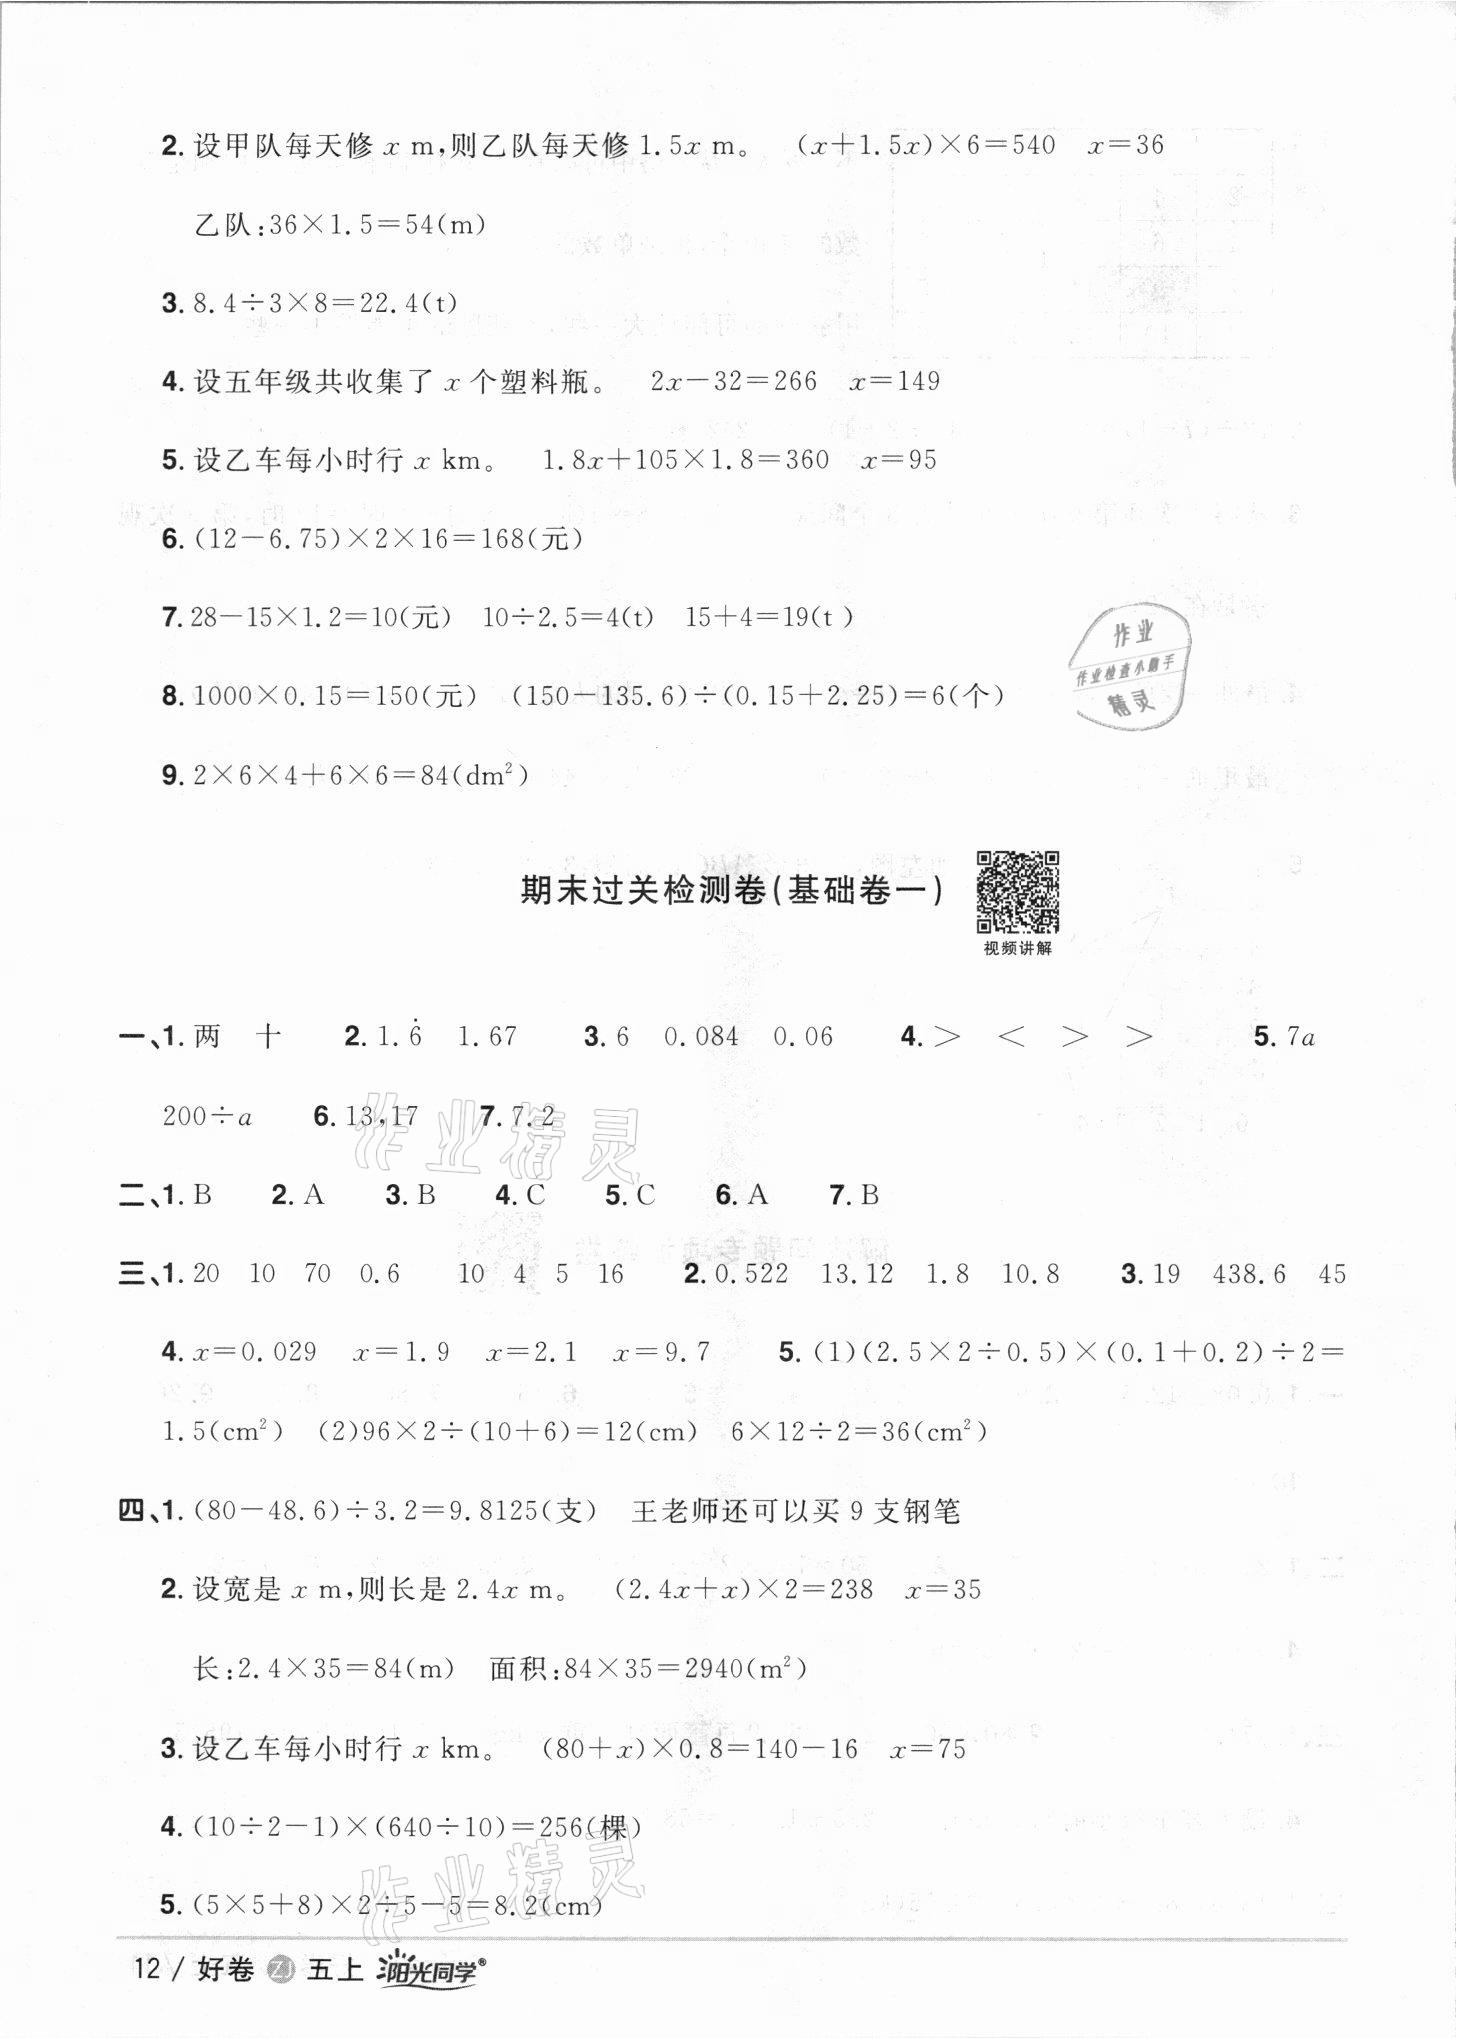 2. 设甲队每天修 x m,则乙队每天修 1.5x m。 (x+1.5x)×6=540 x=36
乙队:36×1.5=54(m)
3. 8.4÷3×8=22.4(t)
4. 设五年级共收集了 x 个塑料瓶。 2x-32=266 x=149
5. 设乙车每小时行 x km。 1.8x+105×1.8=360 x=95
6. (12-6.75)×2×16=168(元)
7. 28-15×1.2=10(元) 10÷2.5=4(t) 15+4=19(t)
作业
作业检查小助手
精灵
8. 1000×0.15=150(元) (150-135.6)÷(0.15+2.25)=6(个)
9. 2×6×4+6×6=84(dm²)
期末过关检测卷(基础卷一)
视频讲解
一、1. 两 十 2. 1.6̇ 1.67 3. 6 0.084 0.06 4. > < > > 5. 7a
200÷a 6. 13,17 7. 7.2
作业精灵
二、1. B 2. A 3. B 4. C 5. C 6. A 7. B
三、1. 20 10 70 0.6 10 4 5 16 2. 0.522 13.12 1.8 10.8 3. 19 438.6 45
4. x=0.029 x=1.9 x=2.1 x=9.7 5. (1)(2.5×2÷0.5)×(0.1+0.2)÷2=
1.5(cm²) (2)96×2÷(10+6)=12(cm) 6×12÷2=36(cm²)
四、1. (80-48.6)÷3.2=9.8125(支) 王老师还可以买 9 支钢笔
2. 设宽是 x m,则长是 2.4x m。 (2.4x+x)×2=238 x=35
长:2.4×35=84(m) 面积:84×35=2940(m²)
3. 设乙车每小时行 x km。 (80+x)×0.8=140-16 x=75
4. (10÷2-1)×(640÷10)=256(棵)
作业精灵
5. (5×5+8)×2÷5-5=8.2(cm)
12 / 好卷 ZJ 五上 阳光同学®